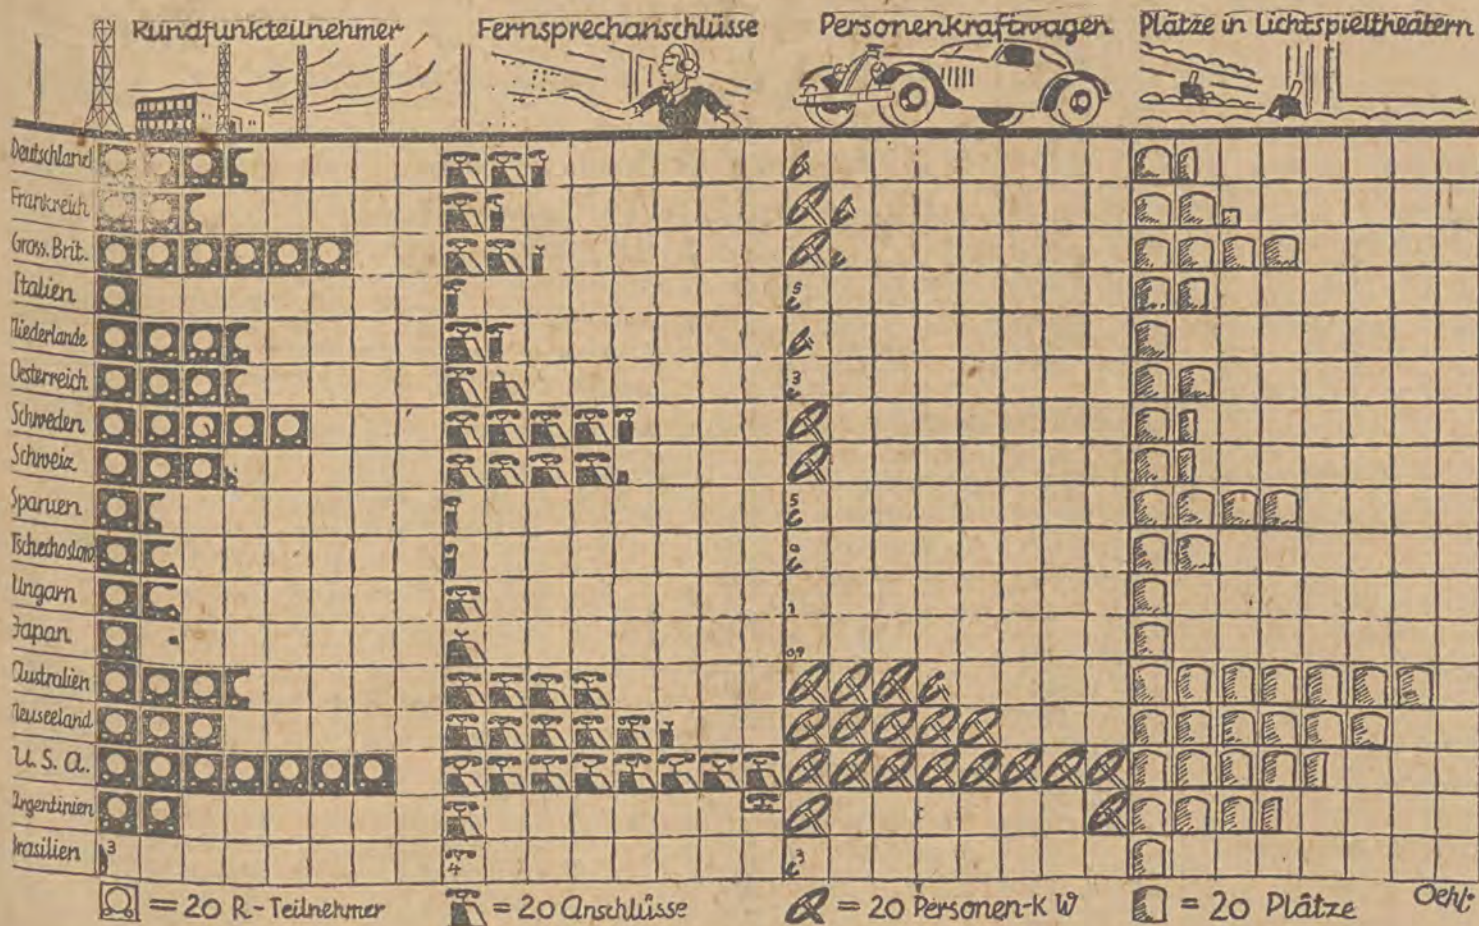 Rundfunkteilnehmer Fernsprechanschlüsse Personenkraftwagen Plätze in Lichtspieltheatern
Deutschland
Frankreich
Gross. Brit.
Italien 5
Niederlande
Oesterreich 3
Schweden
Schweiz
Spanien 5
Tschechoslow.
Ungarn 1
Japan 0,9
Australien
Neuseeland
U. S. A.
Argentinien
Brasilien 3 4 3
= 20 R-Teilnehmer = 20 Anschlüsse = 20 Personen-K W = 20 Plätze Oehl: